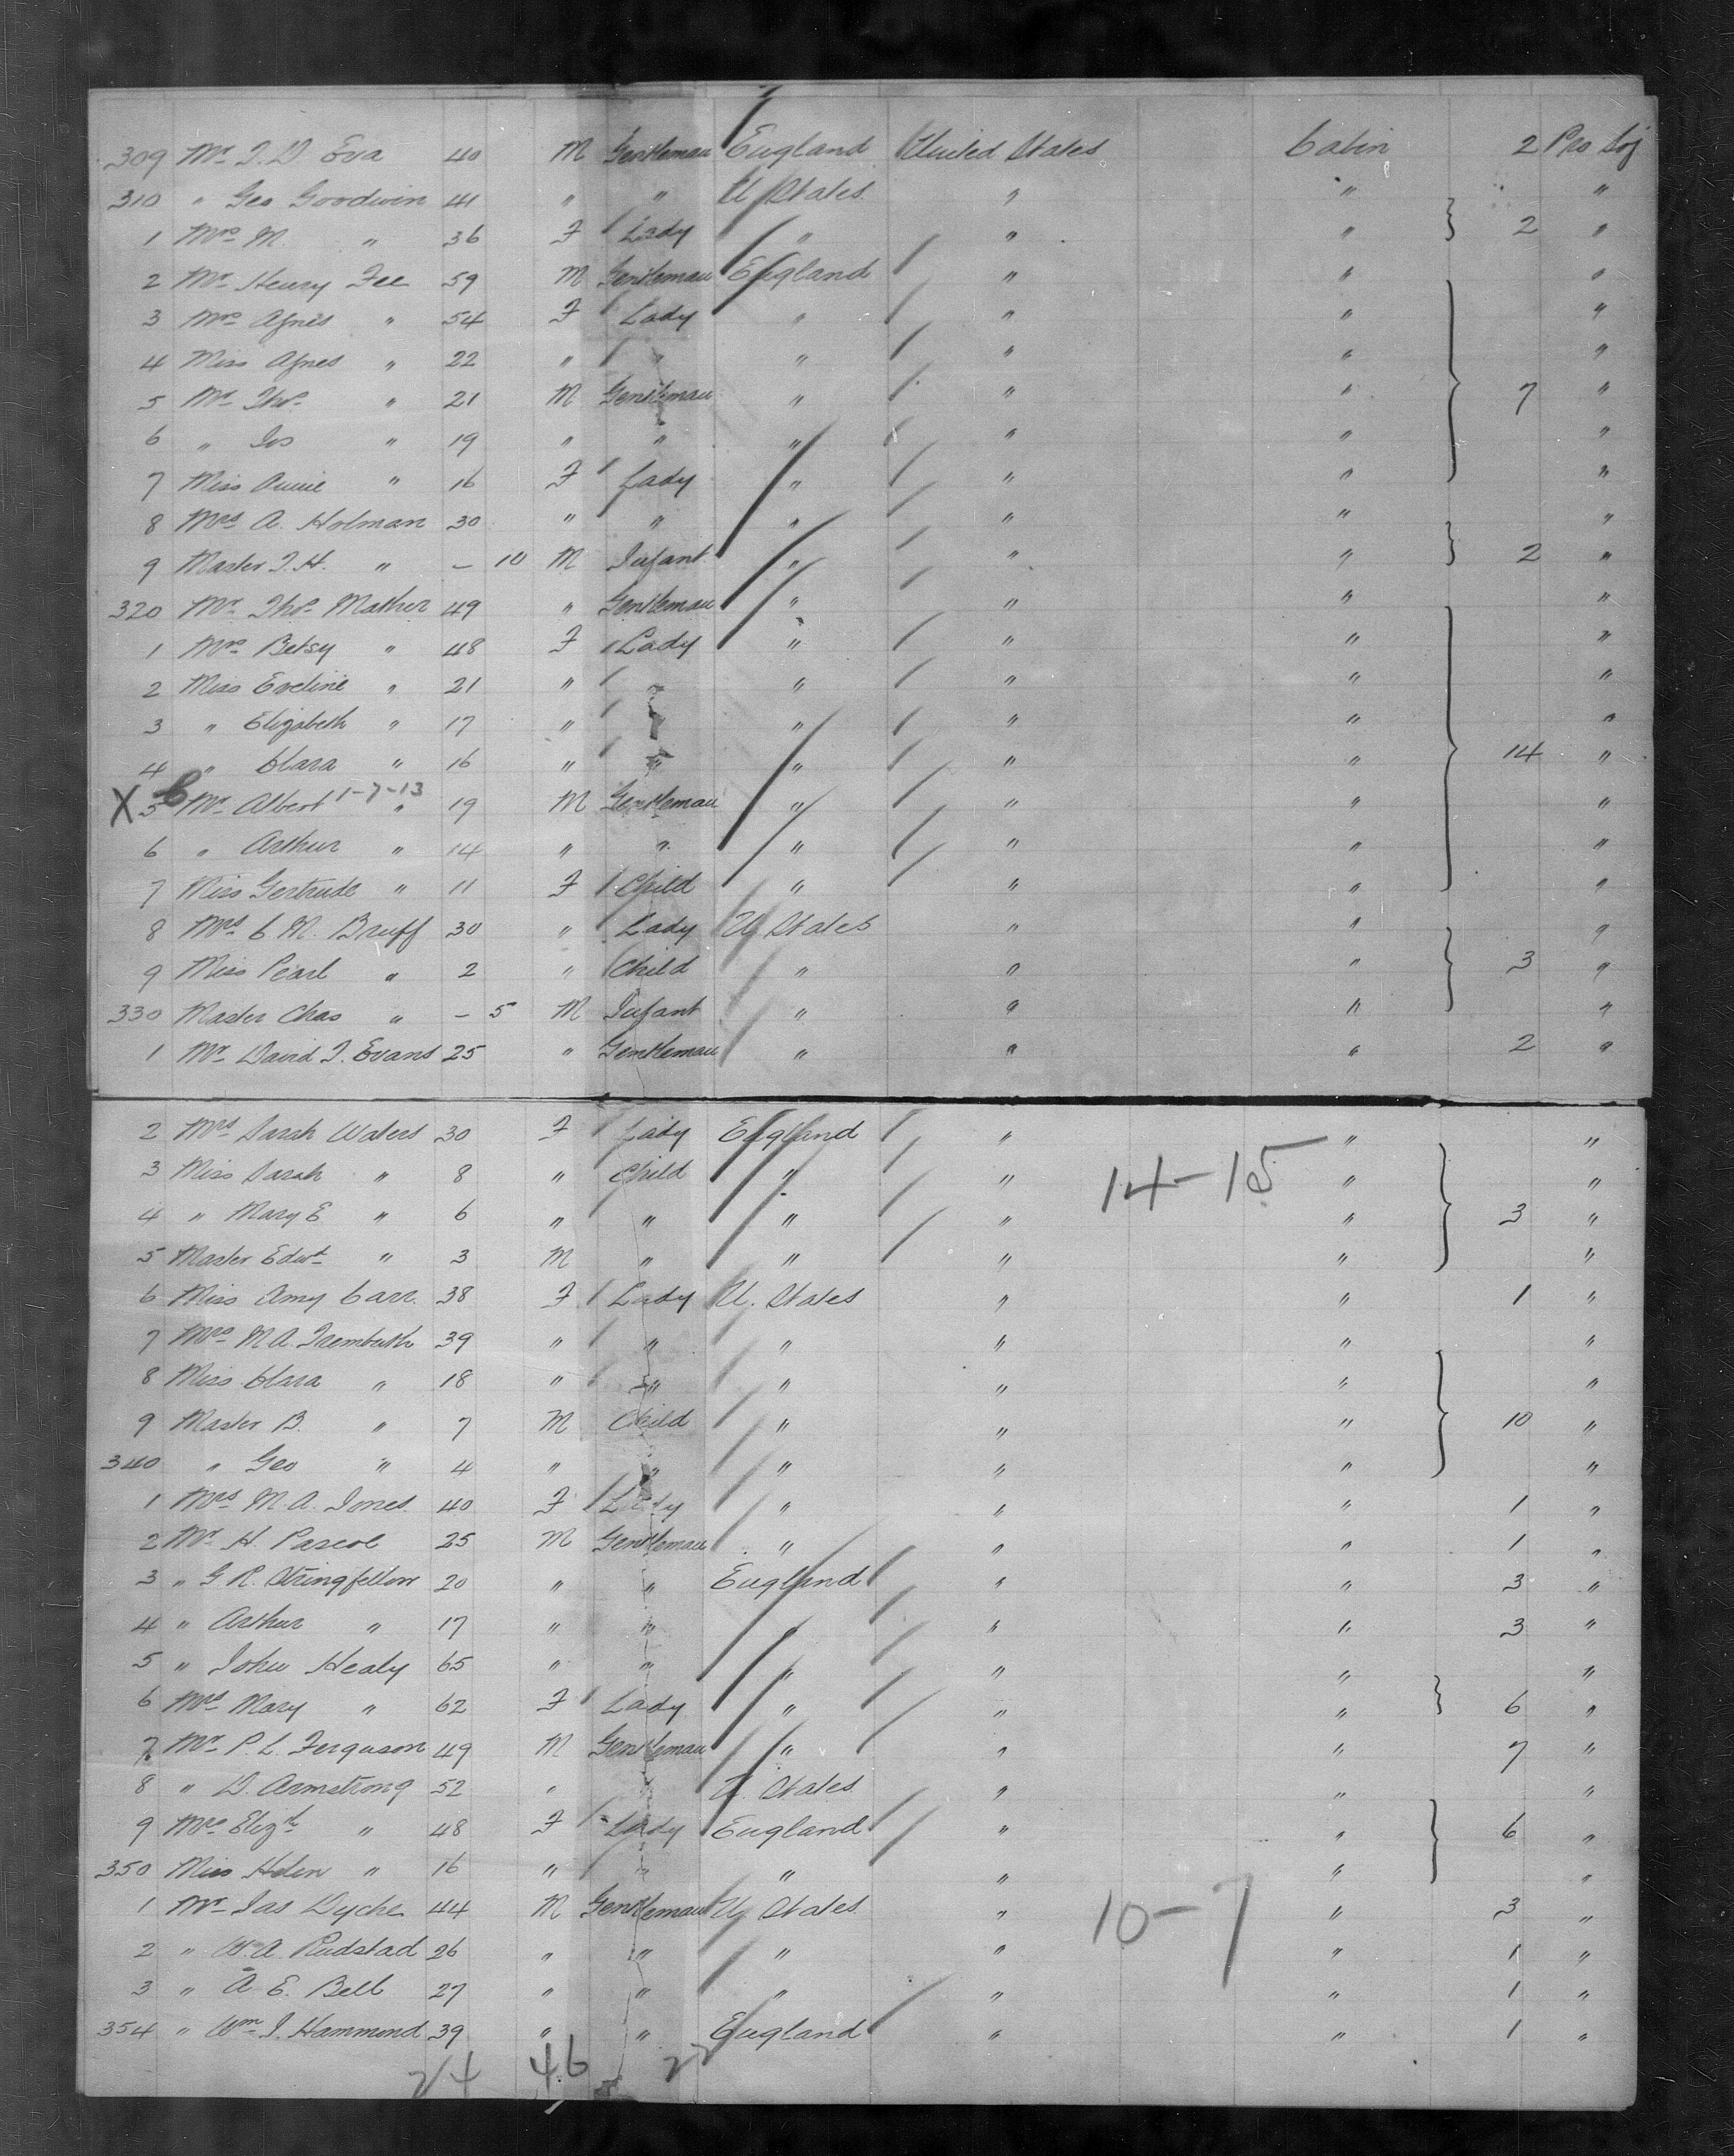 309 Mr. J. D. Eva 40 M Gentleman England United States Cabin 2 Pro Soj
310 " Geo Goodwin 41 " " U States " " "
1 Mrs M. " 36 F Lady " " " 2 "
2 Mr Henry Fee 59 M Gentleman England " " "
3 Mrs Agnes " 54 F Lady " " " "
4 Miss Agnes " 22 " " " " " "
5 Mr Thos " 21 M Gentleman " " " 7 "
6 " Jos " 19 " " " " " "
7 Miss Annie " 16 F Lady " " " "
8 Mrs A. Holman 30 " " " " " "
9 Master J. H. " – 10 M Infant " " " 2 "
320 Mr. Thos Mather 49 " Gentleman " " " "
1 Mrs Betsy " 48 F Lady " " " "
2 Miss Eveline " 21 " " " " "
3 " Elizabeth " 17 " " " " "
4 " Clara " 16 " " " " " 14 "
X 5 6 Mr. Albert 1-7-13 " 19 M Gentleman " " " "
6 " Arthur " 14 " " " " " "
7 Miss Gertrude " 11 F Child " " " "
8 Mrs C M. Bruff 30 " Lady U States " " "
9 Miss Pearl " 2 " Child " " " 3 "
330 Master Chas " – 5 M Infant " " " "
1 Mr. David J. Evans 25 " Gentleman " " " 2 "
2 Mrs Sarah Waters 30 F Lady England " " "
3 Miss Sarah " 8 " Child " " 14-15 " "
4 " Mary E " 6 " " " " " 3 "
5 Master Edwd " 3 M " " " " "
6 Miss Amy Carr. 38 F Lady U. States " " 1 "
7 Mrs M. A. Trembath 39 " " " " " "
8 Miss Clara " 18 " " " " " "
9 Master B. " 7 M Child " " " 10 "
340 " Geo " 4 " " " " " "
1 Mrs M. A. Jones. 40 F Lady " " " 1 "
2 Mr. H. Pascoe 25 M Gentleman " " " 1 "
3 " G R. Stringfellow 20 " " England " " 3 "
4 " Arthur " 17 " " " " " 3 "
5 " John Healy 65 " " " " " "
6 Mrs Mary " 62 F Lady " " " 6 "
7 Mr. P. L. Ferguson 49 M Gentleman " " " 7 "
8 " D. Armstrong 52 " " U. States " " "
9 Mrs Elizth " 48 F Lady England " " 6 "
350 Miss Helen " 16 " " " " " "
1 Mr. Jas Dyche 44 M Gentleman U. States " 10-7 " 3 "
2 " W. A. Rudstad 26 " " " " " 1 "
3 " A. E. Bell 27 " " " " " 1 "
354 " Wm J. Hammond 39 " " England " " 1 "
24 46 22